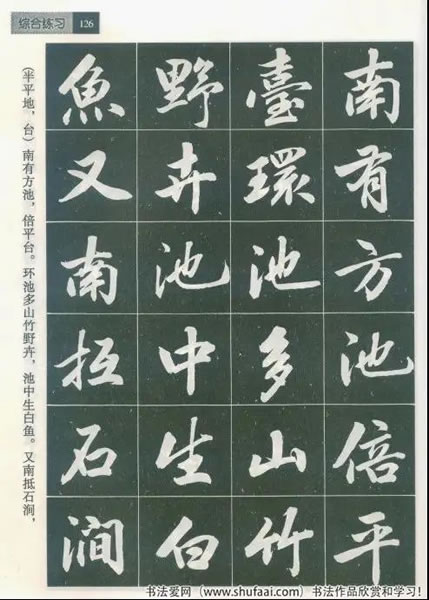 综合练习 126
南有方池倍平
臺環池多山竹
野卉池中生白
魚又南抵石澗
(半平地，台) 南有方池，倍平台。环池多山竹野卉，池中生白鱼。又南抵石涧，
书法爱网（www.shufaai.com）书法作品欣赏和学习！